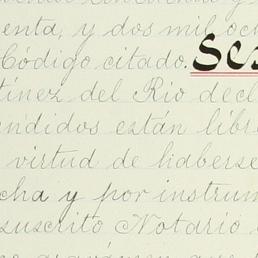 enta, y dos mil och
Código citado. Ses
tinez del Rio decl
endidos están libre
virtud de haberse
cha y por instrum
suscrito Notario